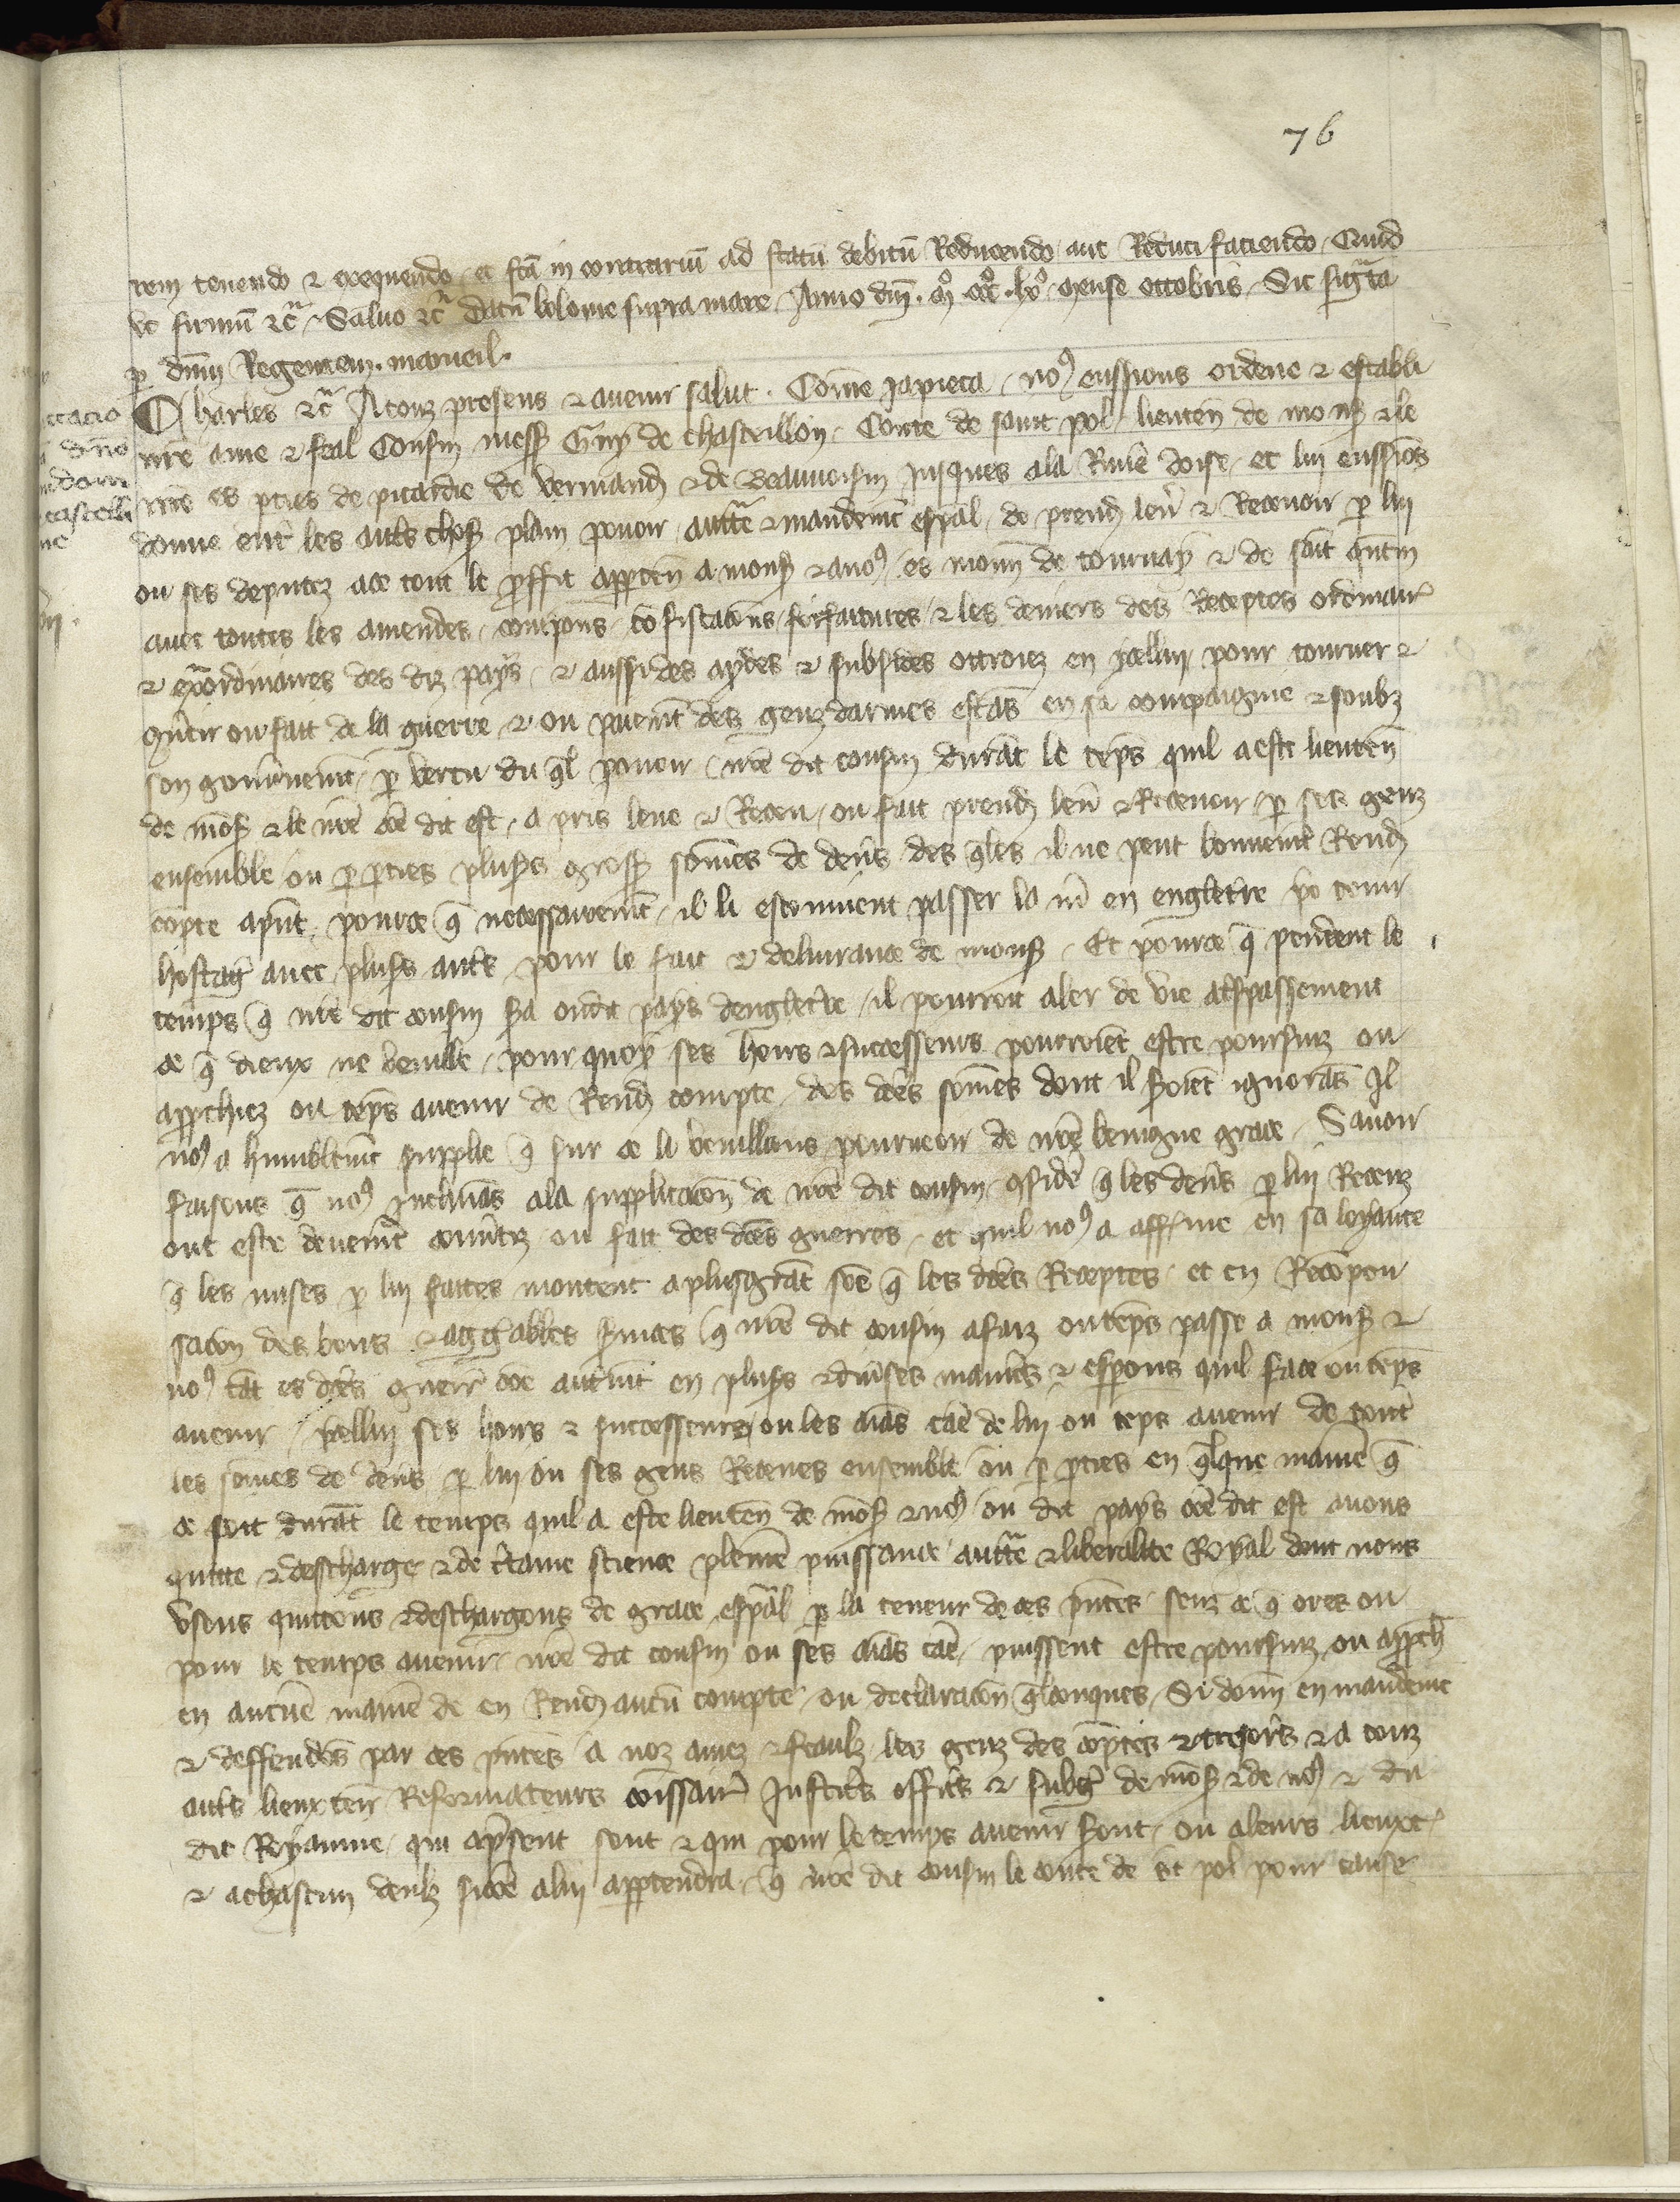 76
rem tenendo ⁊ exequendo et fca̅ in contrariu̅ ad statu̅ debitu̅ Reducendo aut Reduci faciendo Quod
ut firmu̅ ⁊c̃ Saluo ⁊c̃ Datu̅ bolonie supra mare Anno dm̅. mo. ccco. lxo. mense octobris Sic sig̃ta
p dn̅m Regentem. marueil.
Charles ⁊c̃ A touz presens ⁊ auenir salut. Com̅e japieca noꝰ eussions ordene ⁊ establi
nr̅e ame ⁊ feal Cousin mess̅ Guy de chasteillon Conte de saint pol lieuten̅ de mons̅ ⁊ le
nr̅e es pties de picardie de vermand̅ ⁊ de Beauuoisin jusques ala Riuie̅ doise et lui eussio̅s
donne entr̅ les aut̅s chos̅ plain pouoir autt̃e ⁊ mandem̅t esp̅al de prend̅ leu̅ ⁊ Receuoir p lui
ou ses deputez ace tout le proffit apptn̅ a mons̅ ⁊ anoꝰ es monn̅ de tournay ⁊ de sai̅t que̅tin
auec toutes les amendes compo̅ns co̅fiscacio̅ns forfaitures ⁊ les deniers des Receptes ordinair̅
⁊ ex̃ordinaires des diz pays ⁊ aussi des aydes ⁊ subsides ottroiez en ycellui pour tourner ⁊
ou fait de la guerre ⁊ ou paiem̅t des genz darmes esta̅s en sa compaignie ⁊ soubz
son gou̅nem̅t p vertu du q̅l pouoir nr̅e dit cousin dura̅t le te̅ps quil a este lieuten̅
de mo̅s̅ ⁊ le nr̅e co̅e dit est a pris leue ⁊ Receu ou fait prend̅ leu̅ ⁊ Receuoir p ses genz
ensemble ou p pties plus̅s gross̅ so̅mes de den̅s des q̅les il ne peut bonnem̅t Rend̅
co̅pte apn̅t pource q̅ necessairem̅t il li esconuient passer la m̅ en englet̅re po tenir
hostag̅ auec plus̅s aut̅s pour le fait ⁊ deliurance de mons̅ Et pource q̅ pendent le
temps q̅ nr̅e dit cousin s̅a oudit pays denglet̅re il pourroit aler de vie at̅spassement
ce q̅ dieux ne vueille pour quoy ses hoirs ⁊ successeurs pourroie̅t estre poursuiz ou
apprchiez ou te̅ps auenir de Rend̅ compte des dc̅es so̅mes dont il s̅oie̅t ignora̅s Il
noꝰ a humblem̅t supplie q̅ sur ce li vueillians pourueoir de nr̅e benigne grace Sauoir
faisons q̅ noꝰ inclina̅s ala supplicacio̅n de nr̅e dit cousin co̅side̅ q̅ les den̅s p lui Receuz
ont este deuem̅t conu̅tiz ou fait des dc̅es guerres et quil noꝰ a affirme en sa loyaute
q̅ les mises p lui faites montent a plusgra̅t so̅e q̅ les dc̅es Receptes et en Reco̅pen
sacio̅n des bons ⁊ aggreables s̅uices q̅ nr̅e dit cousin a faiz ou te̅ps passe a mons̅ ⁊
noꝰ ta̅t es dc̅es guerr̅ co̅e aut̅m̅t en plus̅s ⁊ diu̅ses manie̅s ⁊ esperons quil face ou te̅ps
auenir ycellui ses hoirs ⁊ successeurs ou les aia̅s cae̅ de lui ou te̅ps auenir de tout̅
les so̅mes de den̅s p lui ou ses gens Receues ensemble ou p pties en q̅lque manie̅ q̅
ce soit dura̅t le temps quil a este lieuten̅ de mo̅s̅ ⁊ noꝰ ou dit pays co̅e dit est auons
quitte ⁊ descharge ⁊ de c̅taine science pleine̅ puissance autt̃e ⁊ liberalite Royal dont nous
vsons quitto̅ns ⁊ deschargons de grace esp̃al p la teneur de ces pn̅tes senz ce q̅ ores ou
pour le temps auenir nr̅e dit cousin ou ses aia̅s cae̅ puissent estre poursuiz ou apprch̅
en aucu̅e manie̅ de en Rend̅ aucu̅ compte ou declaracio̅n q̅lconques Si donn̅ en mandem̅t
⁊ deffendo̅s par ces pn̅tes a noz amez ⁊ feaulz les genz des co̅ptes ⁊ tresor̅s ⁊ a touz
aut̅s lieuxten̅ Reformateurs co̅missair̅ Justic̅s offic̅s ⁊ subg̅ de mo̅s̅ ⁊ de noꝰ ⁊ du
dit Royaume qui ap̅sent sont ⁊ qui pour le temps auenir s̅ont ou aleurs lieuxt̅
⁊ achascun deulz sico̅e alui apptendra q̅ nr̅e dit cousin le conte de st̅ pol pour cause